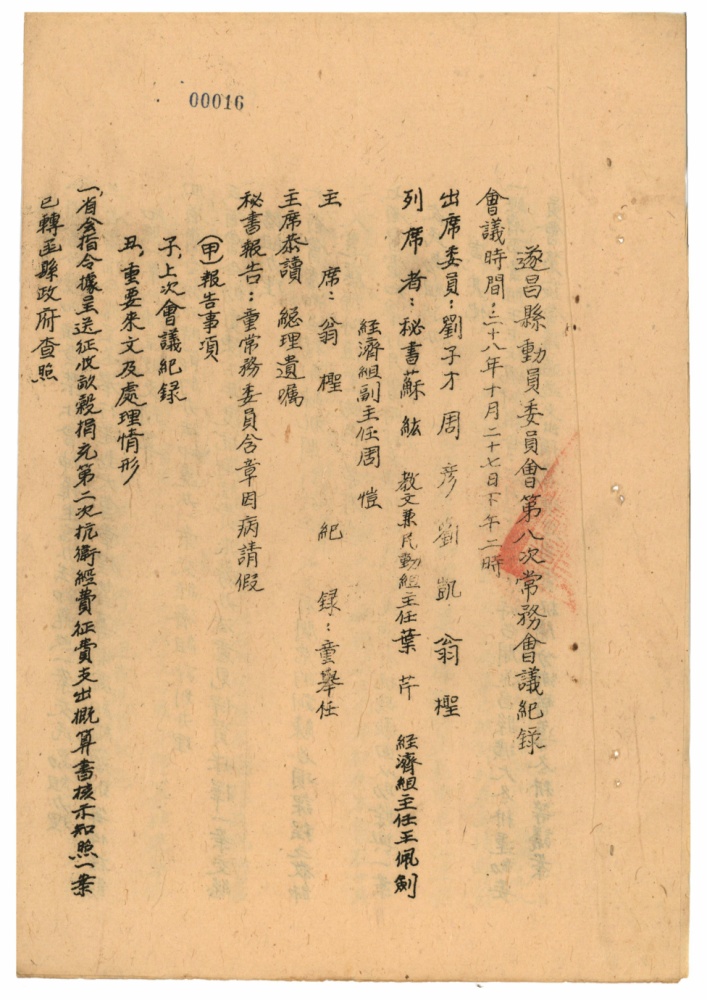 00016
遂昌縣動員委員會第八次常務會議紀錄
會議時間：二十八年十月二十七日下午二時
出席委員：劉子才 周彦 劉凱 翁檉
列席者：秘書蘇紘 教文兼民動組主任葉芹 經濟組主任王佩劍
經濟組副主任周愷
主席：翁檉 紀錄：童舉任
主席恭讀 總理遺囑
秘書報告：童常務委員含章因病請假
(甲)報告事項
子，上次會議紀録
丑，重要來文及處理情形
一，省会指令據呈送征收畝穀捐充第二次抗衛經費征費支出概算書核示知照一案
已轉函縣政府查照